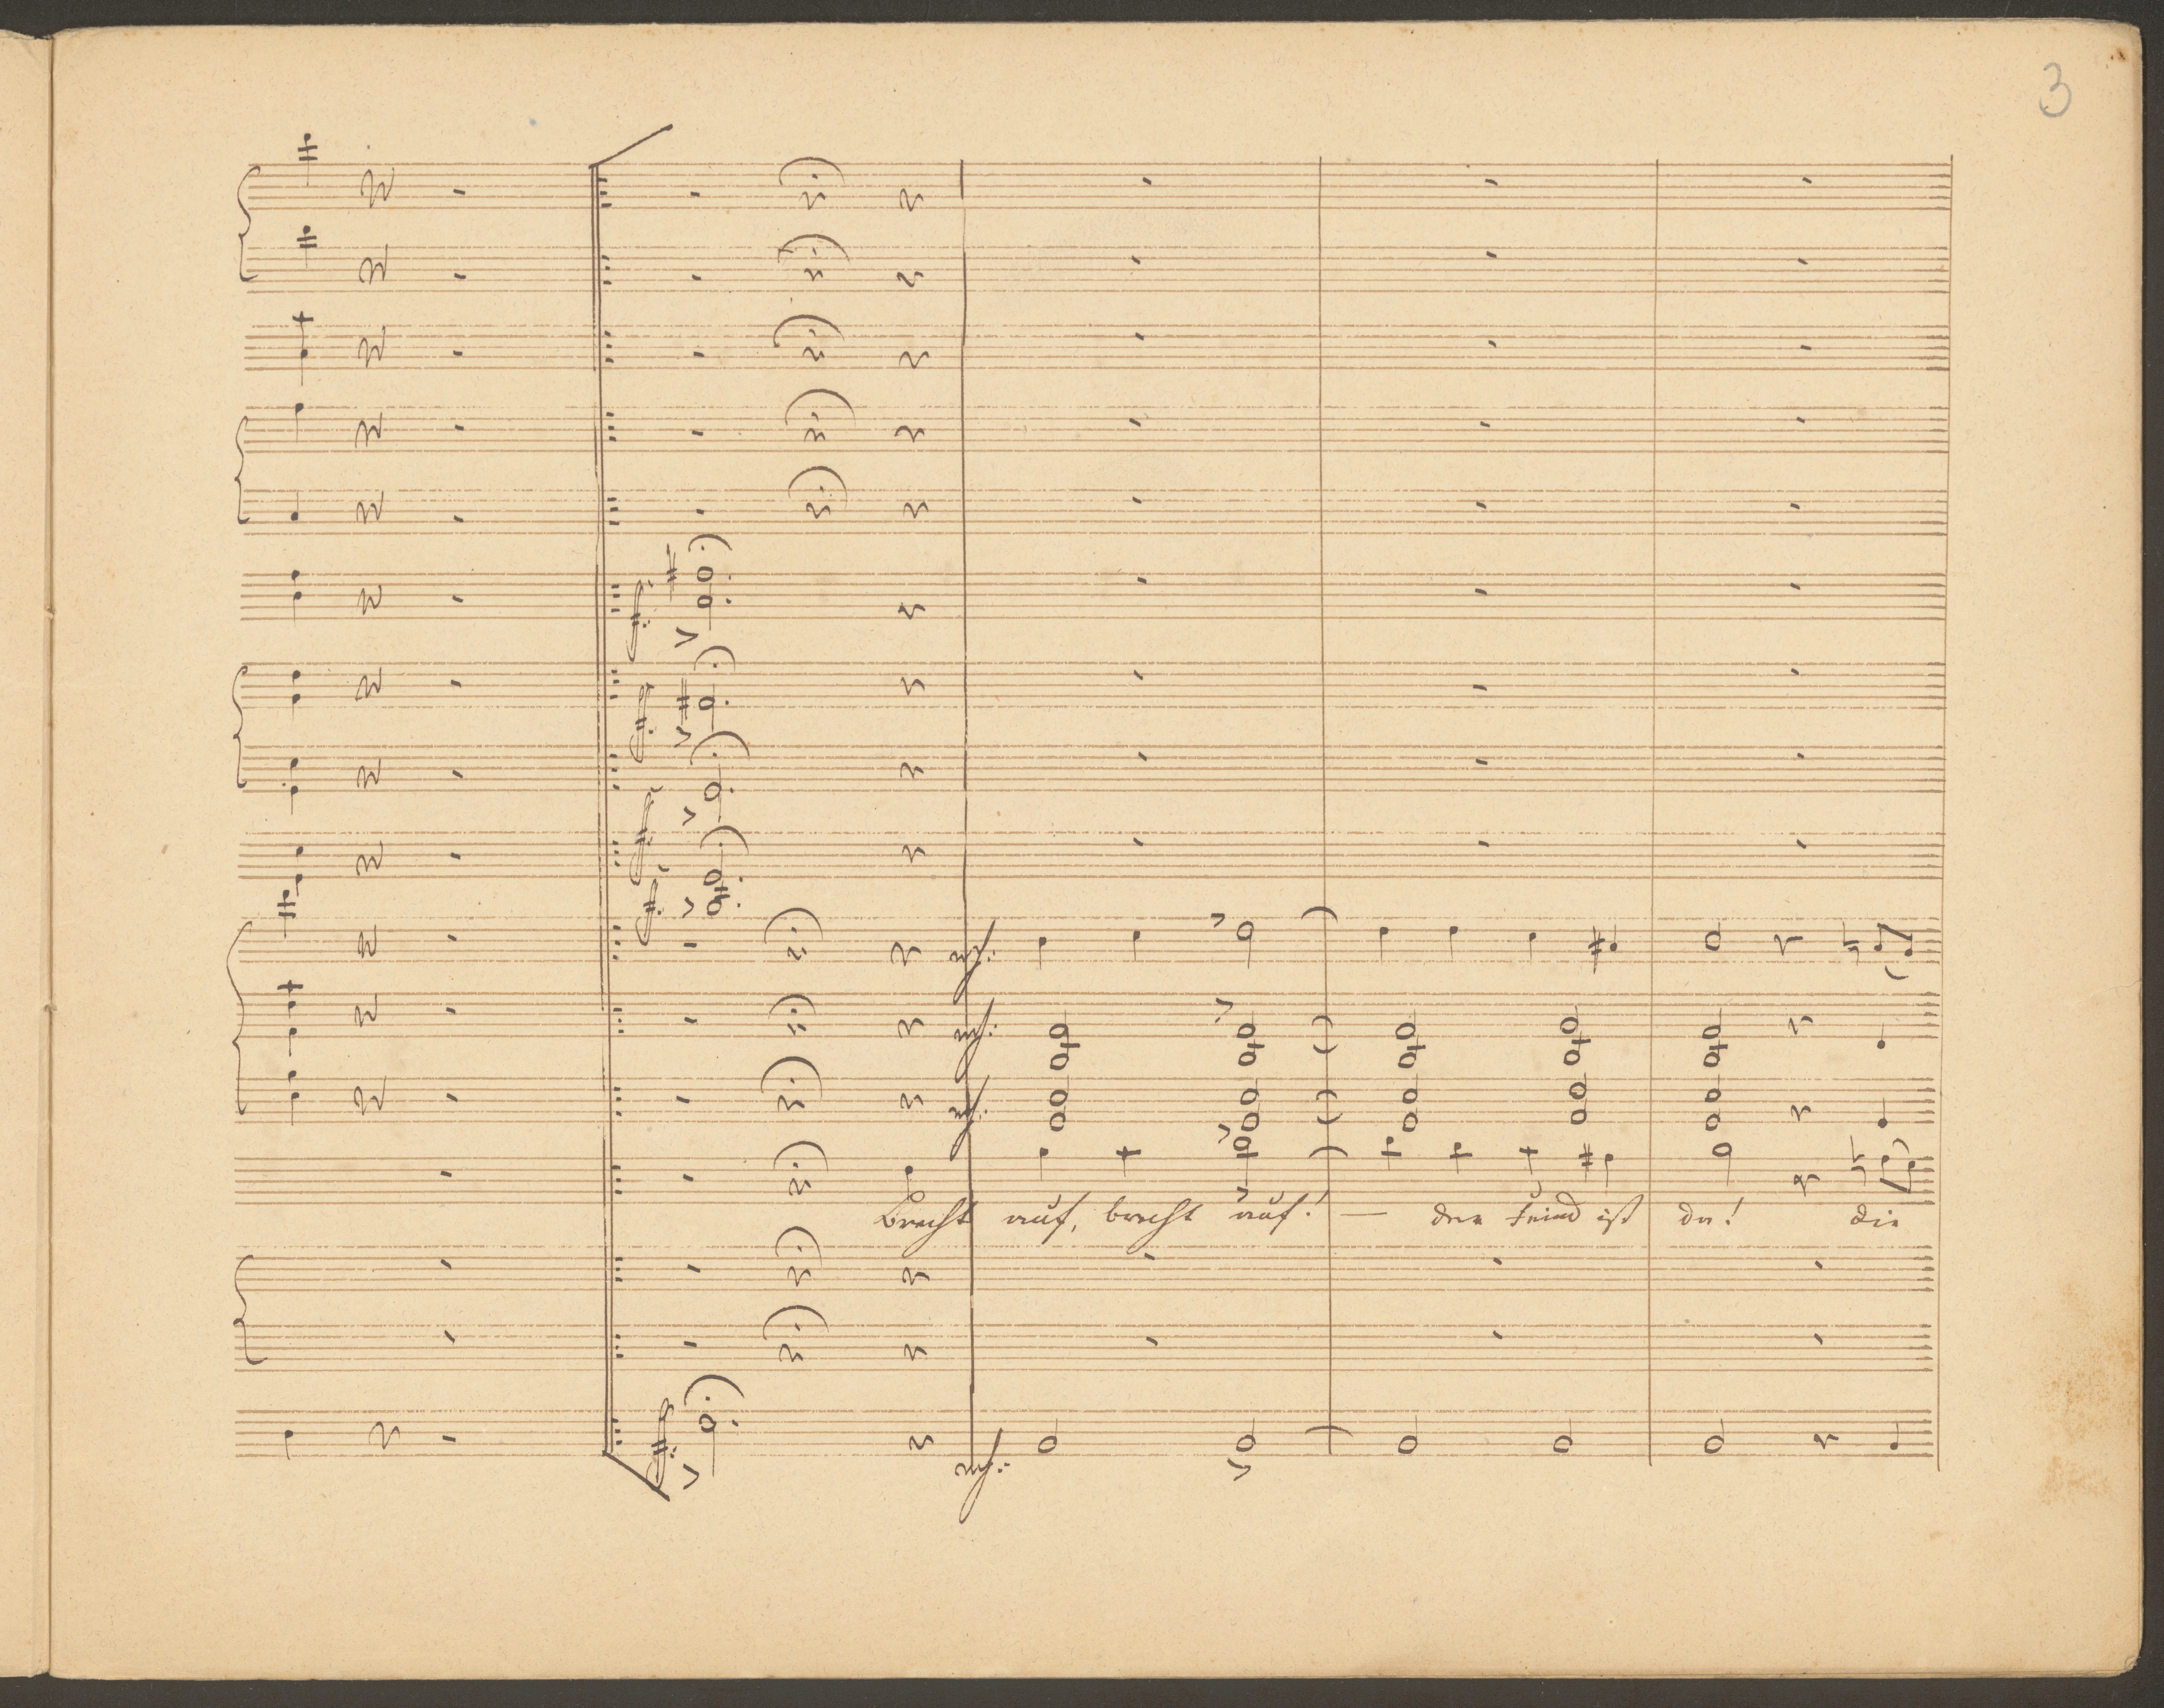 3
ff:
ff:
ff:
ff.
mf:
mf:
mf:
Brecht auf, brecht auf! — der Feind ist da! die
ff:
mf: